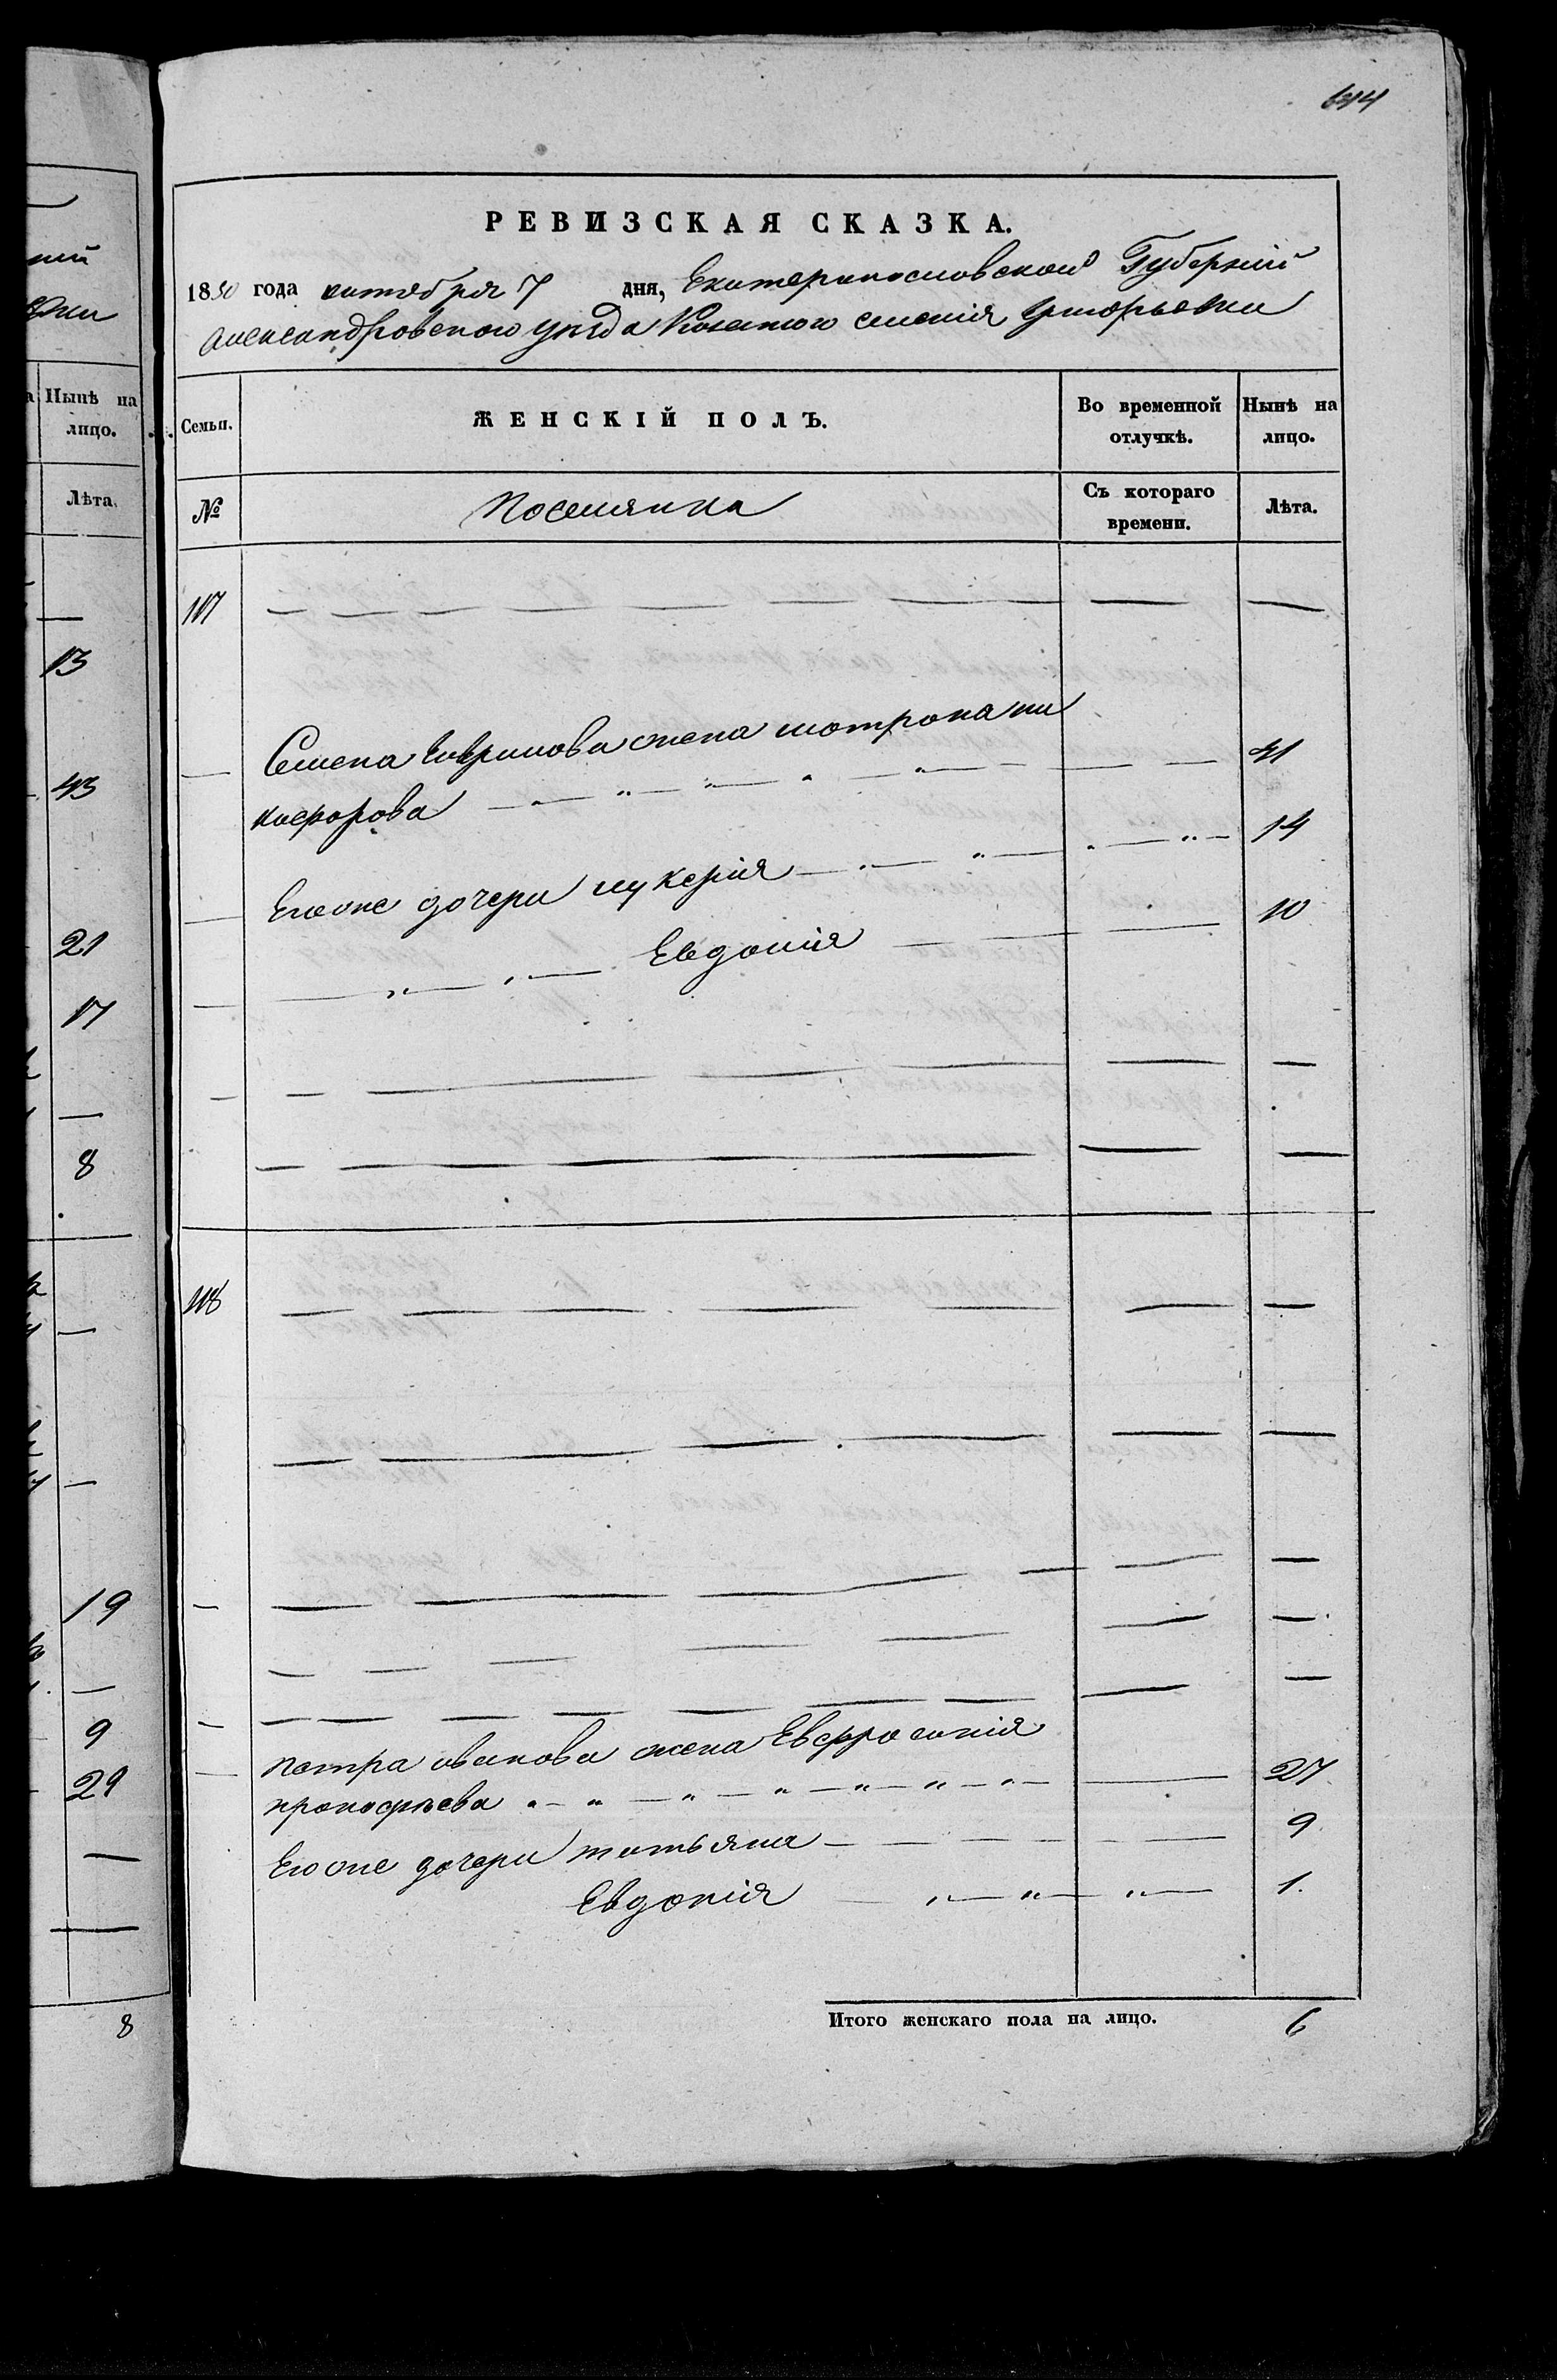 644
РЕВИЗСКАЯ СКАЗКА.
1850 года октября 7 дня, Екатеринославской Губерніи
Александровского уезда Казенного селенія Григорьевки
Семьи. ЖЕНСКІЙ ПОЛЪ. Во временной отлучкѣ. Нынѣ на лицо.
№ Поселянка Съ котораго времени. Лѣта.
117 — — —
Семена Гаврилова жена матрона ни
кифорова 41
Его же дочери лукерія 14
Евдокия 10
118 — — —
петра иванова жена Евфросинія
прокофьева 27
Его же дочери татьяна 9
Евдокія 1.
Итого женскаго пола на лицо. 6
Нынѣ на
лицо.
Лѣта.
13
43
21
17
8
19
9
29
8